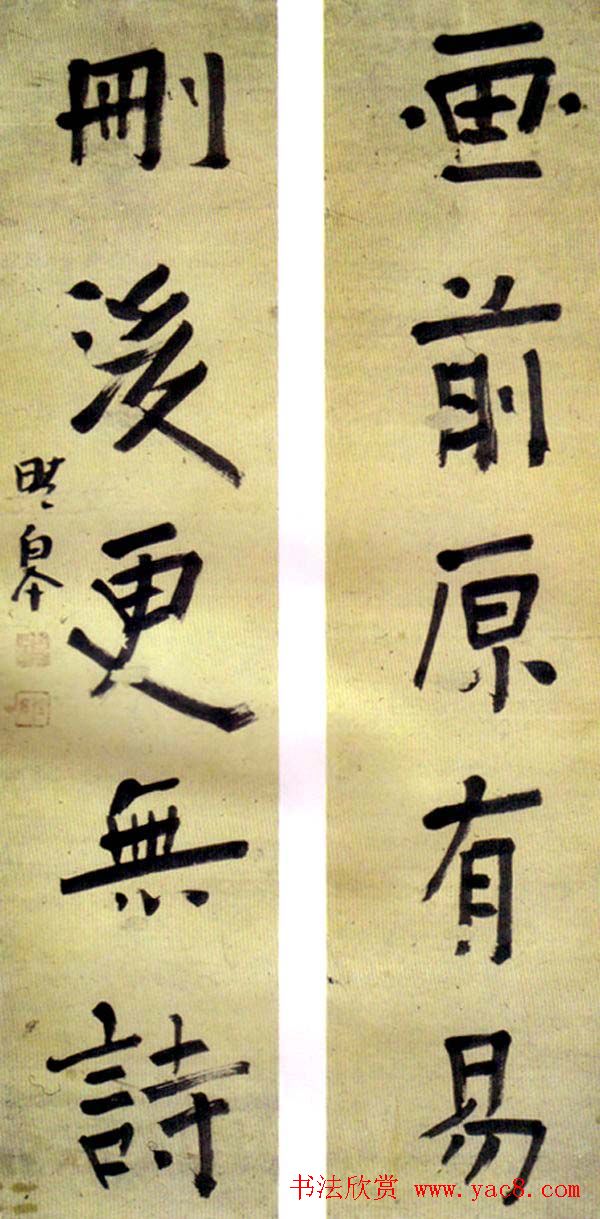 畫前原有易
刪後更無詩
時皋
书法欣赏 www.yac8.com